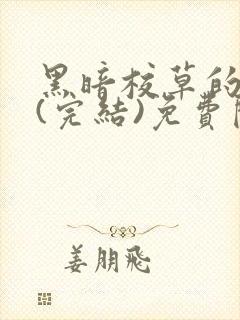 黑暗校草的
(完結)免費
姜朋飛